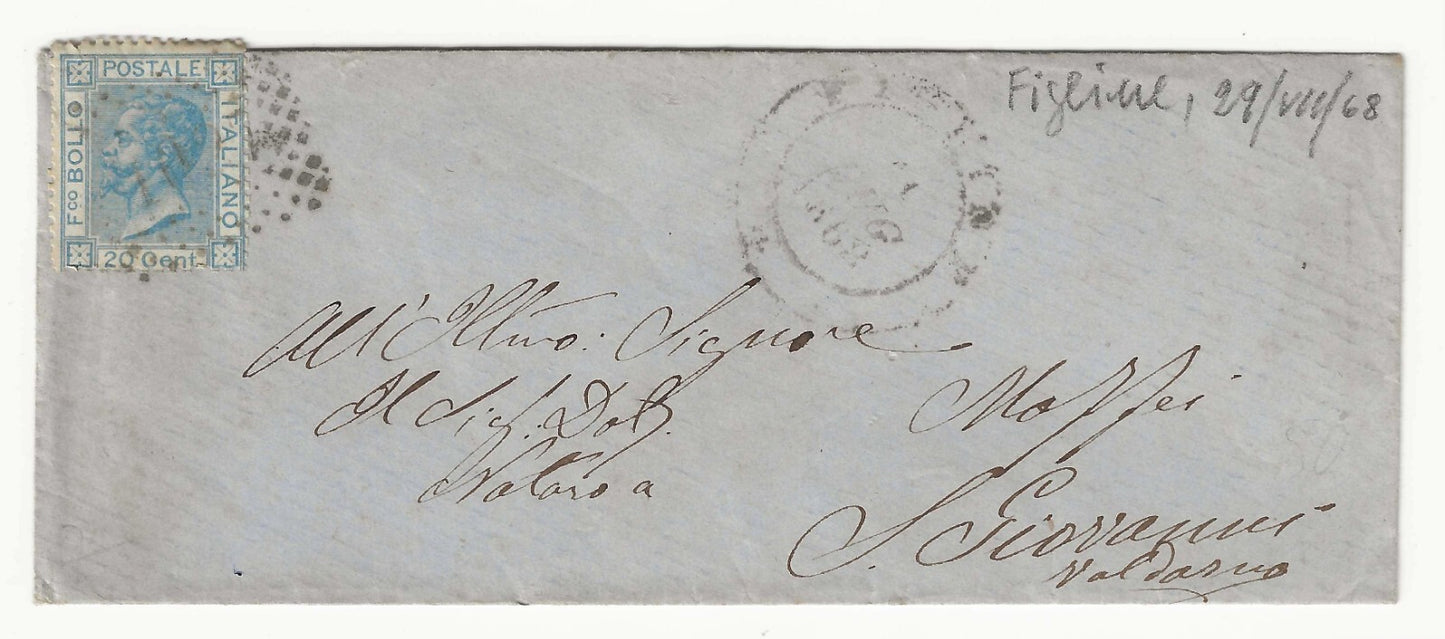 POSTALE
Fco BOLLO
ITALIANO
20 Cent.
Figline, 29/VIII/68
AGO
All' Illmo: Signore
Il Sig. Dott. Maffei
Notaro a
S. Giovanni
Valdarno